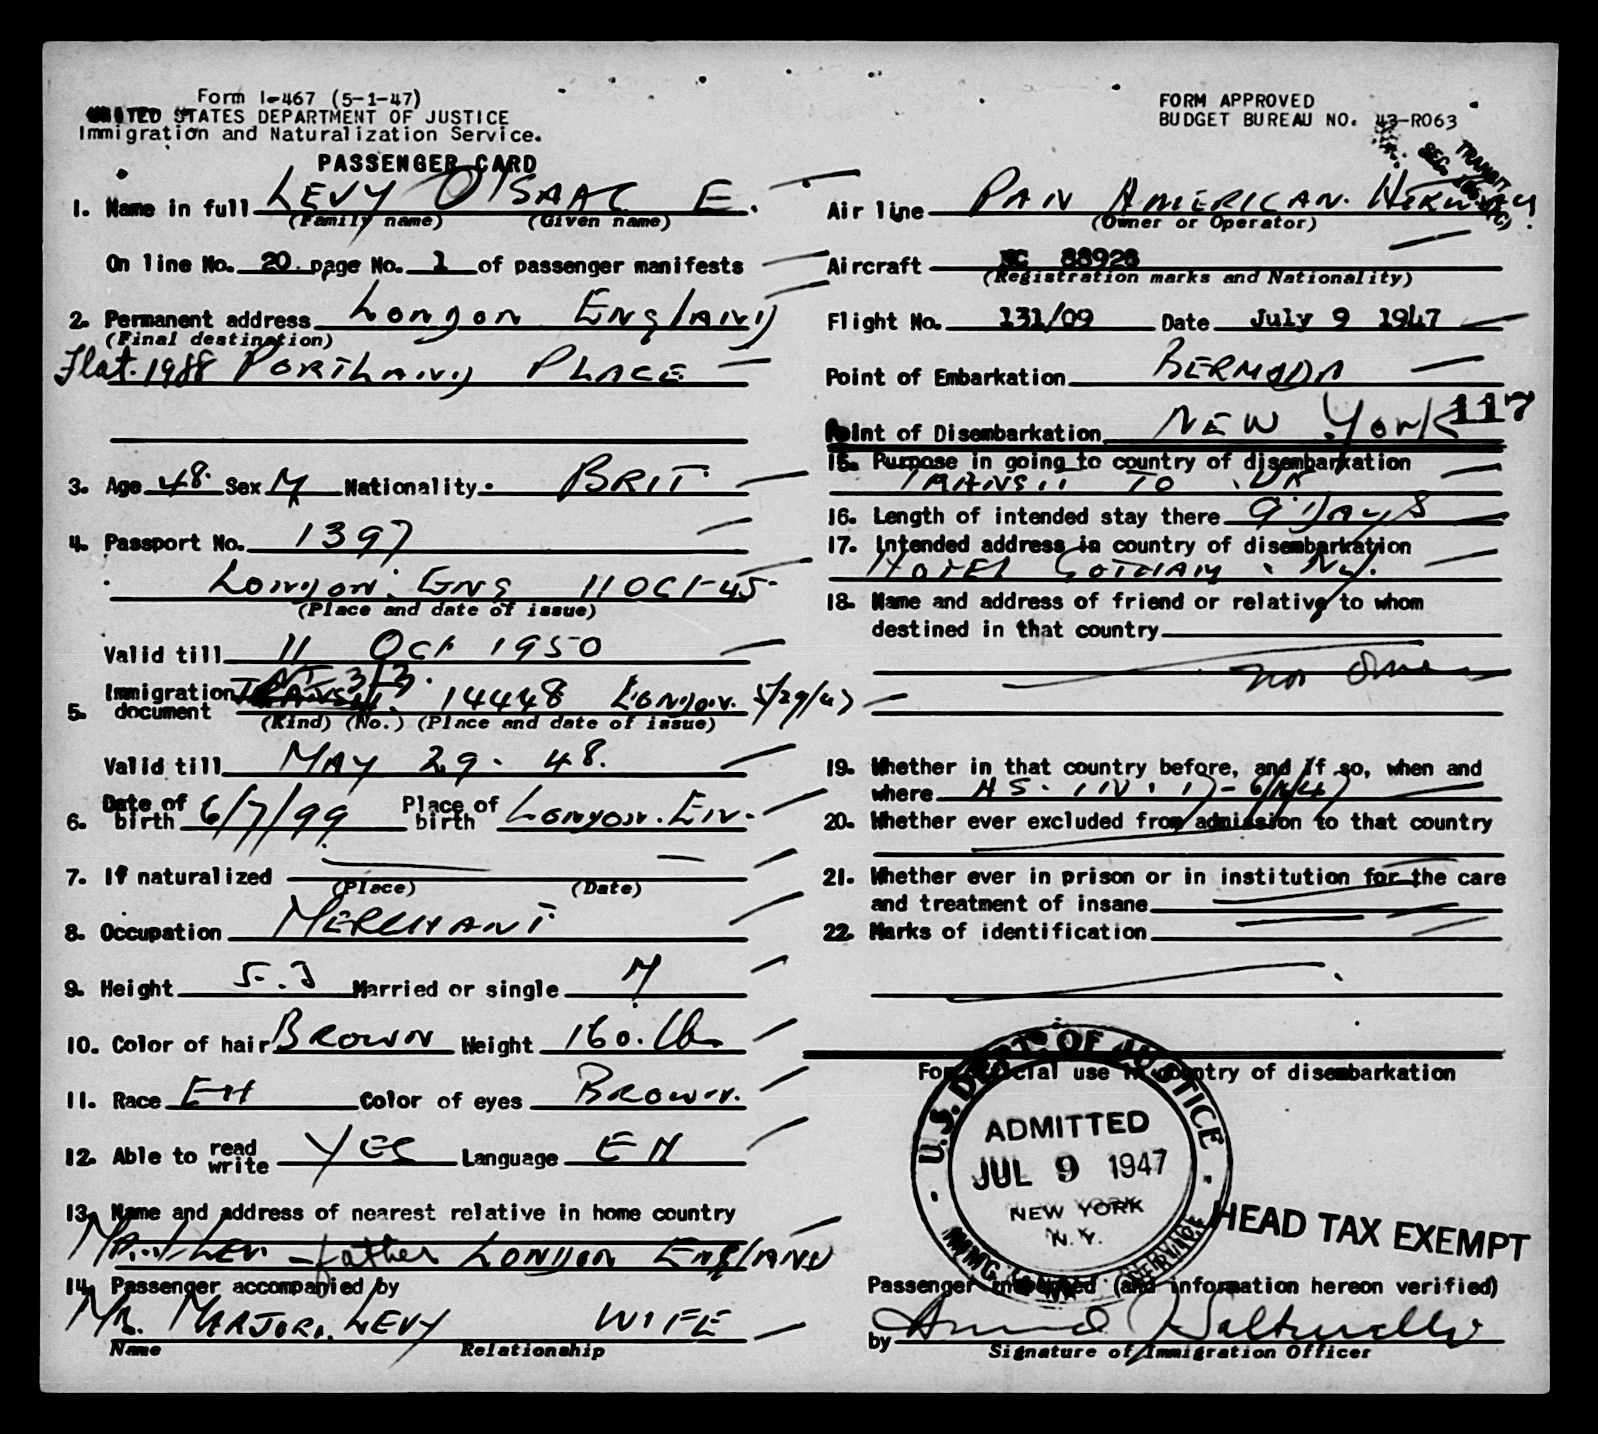 Form I-467 (5-1-47)
UNITED STATES DEPARTMENT OF JUSTICE
Immigration and Naturalization Service.
PASSENGER CARD
1. Name in full LEVY ISAAC E.
(Family name) (Given name)
On line No. 20. page No. 1 of passenger manifests
2. Permanent address London England
(Final destination)
Flat. 1988 PORTLAND PLACE
3. Age 48. Sex M Nationality. BRIT
4. Passport No. 1397
London. Eng 11 OCT-45
(Place and date of issue)
Valid till 11 Oct 1950
5. Immigration document TRANSIT. 3/3. 14448 London. 5/29/47
(Kind) (No.) (Place and date of issue)
Valid till MAY 29. 48.
6. Date of birth 6/7/99 Place of birth London. En.
7. If naturalized
(Place) (Date)
8. Occupation MERCHANT
9. Height 5.3 Married or single M
10. Color of hair BROWN Weight 160. lb.
11. Race EH Color of eyes BROWN.
12. Able to read write YES Language EN
13. Name and address of nearest relative in home country
father LONDON ENGLAND
14. Passenger accompanied by
MARJORI. LEVY WIFE
Name Relationship
FORM APPROVED
BUDGET BUREAU NO. 43-R063
TRANSIT
SEC.
Air line PAN AMERICAN. AIRWAY
(Owner or Operator)
Aircraft NC 88928
(Registration marks and Nationality)
Flight No. 131/09 Date July 9 1947
Point of Embarkation BERMUDA
Point of Disembarkation NEW YORK
117
15. Purpose in going to country of disembarkation
TRANSIT TO UK
16. Length of intended stay there 9 Days
17. Intended address in country of disembarkation
HOTEL GOTHAM. NY.
18. Name and address of friend or relative to whom
destined in that country
19. Whether in that country before, and if so, when and
where
20. Whether ever excluded from admission to that country
21. Whether ever in prison or in institution for the care
and treatment of insane
22. Marks of identification
For official use in country of disembarkation
U.S. DEPT. OF JUSTICE
ADMITTED
JUL 9 1947
NEW YORK
N. Y.
IMMG. SERVICE
HEAD TAX EXEMPT
Passenger inspected (and information hereon verified)
by
Signature of Immigration Officer